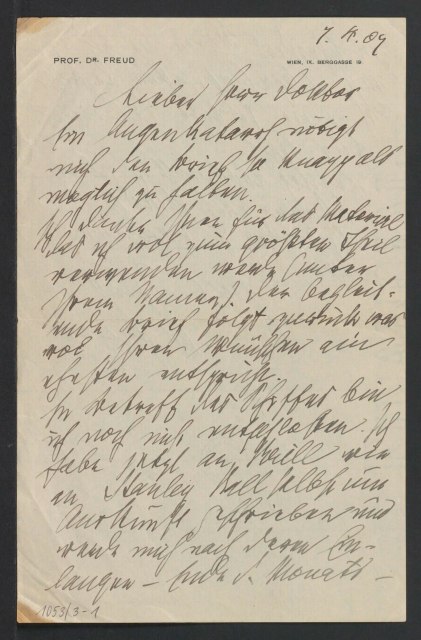 7. II. 09
PROF. DR. FREUD
WIEN, IX. BERGGASSE 19.
Lieber Herr Doktor
Ein Augenkatarrh nötigt
mich den Brief so knapp als
möglich zu halten.
Ich danke Ihnen für das Material
das ich wol zum größten Theil
verwenden werde (unter
Ihrem Namen). Der begleit-
ende Brief folgt zurück was
wol Ihren Wünschen am
ehesten entspricht.
In Betreff des Schiffes bin
ich noch nicht entschlossen. Ich
habe jetzt an wie
an Stanley Hall selbst um
Auskunft geschrieben und
werde mich nach deren Ein-
langen – Ende d. Monats –
1053/3-1